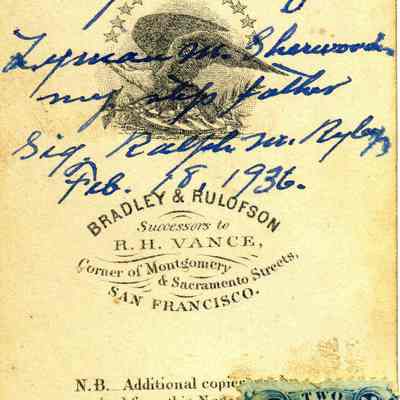 Lyman M. Sherwood
my step father
Sig. Ralph M.
Feb. 28, 1936.
BRADLEY & RULOFSON
Successors to
R. H. VANCE,
Corner of Montgomery
& Sacramento Streets,
SAN FRANCISCO.
N.B. Additional copies
TWO